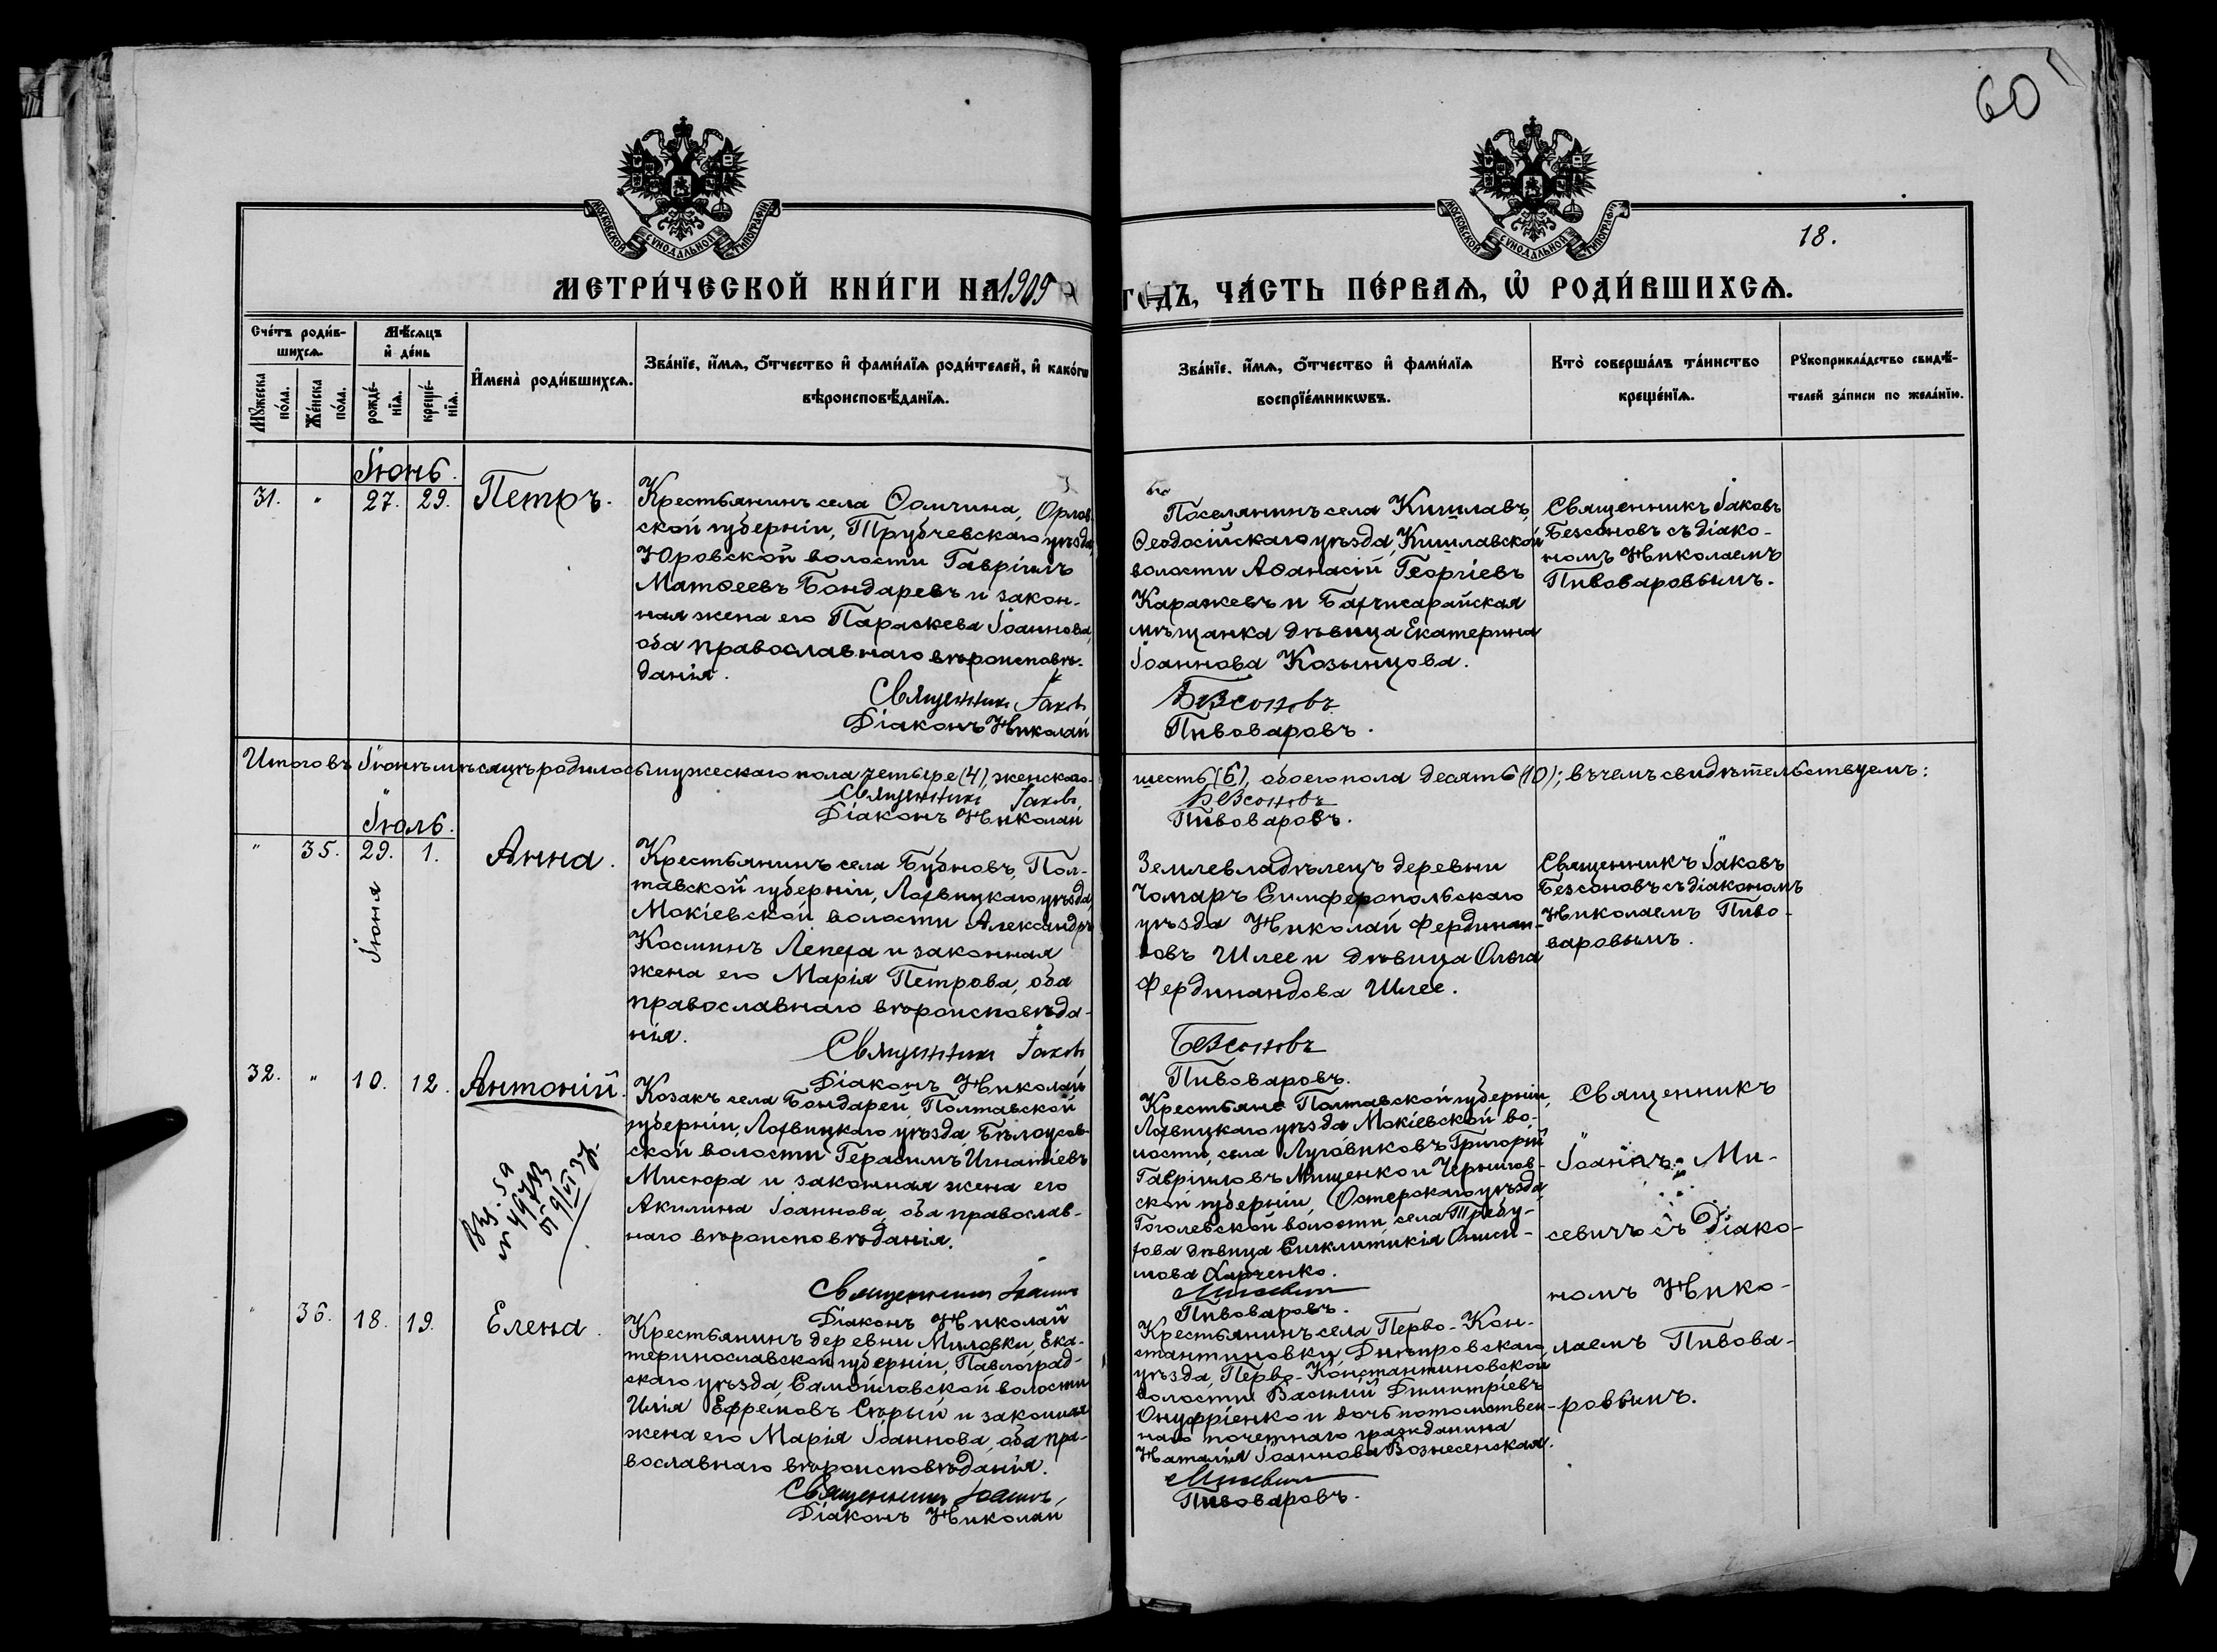 60
18.
МОСКОВСКОЙ СУНОДАЛЬНОЙ ТИПОГРАФІИ
МОСКОВСКОЙ СУНОДАЛЬНОЙ ТИПОГРАФІИ
МЕТРИ́ЧЕСКОЙ КНИ́ГИ НА 1909
ГОДЪ, ЧА́СТЬ ПЕ́РВАѦ, Ѡ РОДИ́ВШИХСѦ.
Сче́тъ роди́в-
шихсѧ.
Мꙋ́жеска
по́ла.
Же́нска
по́ла.
Мѣ́сѧцъ
и҆ де́нь
рожде́-
нїѧ.
креще́-
нїѧ.
И҆мена̀ роди́вшихсѧ.
Зва́нїе, и҆́мѧ, ѻ҆́тчество и҆ фами́лїѧ роди́телей, и҆ како́гѡ
вѣроисповѣ́данїѧ.
Зва́нїе, и҆́мѧ, ѻ҆́тчество и҆ фами́лїѧ
воспрїе́мникѡвъ.
Кто̀ соверша́лъ та́инство
креще́нїѧ.
Рꙋкоприкла́дство свидѣ́-
телей за́писи по жела́нїю.
Іюнь.
31. " 27. 29. Петръ.
Крестьянинъ села Ѳомчина, Орлов-
ской губерніи, Трубчевскаго уѣзда,
Юровской волости Гавріилъ
Матѳеевъ Бондаревъ и закон-
ная жена его Параскева Іоаннова,
оба православнаго вѣроисповѣ-
данія.
Священникъ Іаковъ
Діаконъ Николай
Поселянинъ села Кишлавъ,
Ѳеодосійскаго уѣзда, Кишлавской
волости Аѳанасій Георгіевъ
Каражевъ и Бахчисарайская
мѣщанка дѣвица Екатерина
Іоаннова Козынцова.
Безсоновъ
Пивоваровъ.
Священникъ Іаковъ
Безсоновъ съ діако-
номъ Николаемъ
Пивоваровымъ.
Итого въ Іюнѣ мѣсяцѣ родилось мужескаго пола четыре (4), женскаго
шесть (6), обоего пола десять (10); въ чемъ свидѣтельствуемъ:
Священникъ Іаковъ
Діаконъ Николай
Безсоновъ
Пивоваровъ.
Іюль.
" 35. 29. 1. Анна.
Іюня
Крестьянинъ села Бубновъ, Пол-
тавской губерніи, Лохвицкаго уѣзда
Мокіевской волости Александръ
Косминъ Лепеха и законная
жена его Марія Петрова, оба
православнаго вѣроисповѣда-
нія.
Священникъ Іаковъ
Діаконъ Николай
Землевладѣлецъ деревни
Чомаръ Симферопольскаго
уѣзда Николай Фердинан-
довъ Шлее и дѣвица Ольга
Фердинандова Шлее.
Безсоновъ
Пивоваровъ.
Священникъ Іаковъ
Безсоновъ съ діакономъ
Николаемъ Пиво-
варовымъ.
32. " 10. 12. Антоній.
Козакъ села Бондарей, Полтавской
губерніи, Лохвицкаго уѣзда, Бѣлоусов-
ской волости Герасимъ Игнатіевъ
Мисюра и законная жена его
Акилина Іоаннова, оба православ-
наго вѣроисповѣданія.
Священникъ Іоаннъ
Діаконъ Николай
Крестьяне Полтавской губерніи,
Лохвицкаго уѣзда Мокіевской во-
лости, села Луговиковъ Григорій
Гавріиловъ Мищенко и Чернигов-
ской губерніи, Остерскаго уѣзда,
Гоголевской волости, села Требу-
хова дѣвица Синклитикія Ониси-
мова Харченко.
Мисевичъ
Пивоваровъ.
Священникъ
Іоаннъ Ми-
севичъ съ Діако-
номъ Нико-
лаемъ Пивова-
ровымъ.
" 36. 18. 19. Елена.
Крестьянинъ деревни Миловки, Ека-
теринославской губерніи, Павлоград-
скаго уѣзда, Самойловской волости
Илія Ефремовъ Сѣрый и законная
жена его Марія Іоаннова, оба пра-
вославнаго вѣроисповѣданія.
Священникъ Іоаннъ,
Діаконъ Николай
Крестьянинъ села Перво-Кон-
стантиновки, Днѣпровскаго
уѣзда, Перво-Константиновской
волости Василій Димитріевъ
Онуфріенко и дочь потомствен-
наго почетнаго гражданина
Наталія Іоаннова Вознесенская.
Мисевичъ
Пивоваровъ.